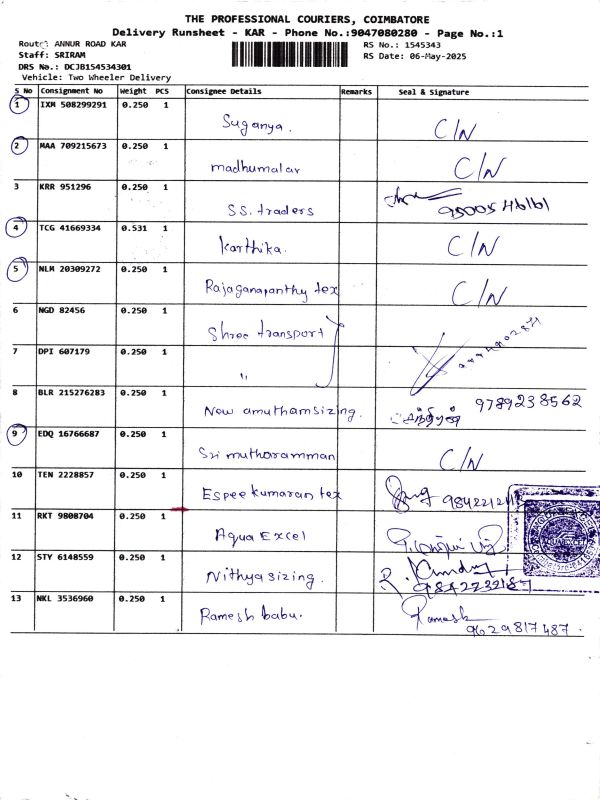 THE PROFESSIONAL COURIERS, COIMBATORE
Delivery Runsheet - KAR - Phone No.:9047080280 - Page No.:1
Route: ANNUR ROAD KAR
RS No.: 1545343
Staff: SRIRAM
RS Date: 06-May-2025
DRS No.: DCJB154534301
Vehicle: Two Wheeler Delivery
S No Consignment No Weight PCS Consignee Details Remarks Seal & Signature
1 IXM 508299291 0.250 1 Suganya. C/N
2 MAA 709215673 0.250 1 madhumalar C/N
3 KRR 951296 0.250 1 S.S. traders
4 TCG 41669334 0.531 1 Karthika. C/N
5 NLM 20309272 0.250 1 Rajaganapanthy tex C/N
6 NGD 82456 0.250 1 Shree transport
7 DPI 607179 0.250 1 "
8 BLR 215276283 0.250 1 New amuthamsizing. 9789238562
9 EDQ 16766687 0.250 1 Sri mutharamman C/N
10 TEN 2228857 0.250 1 Espee kumaran tex
11 RKT 9808704 0.250 1 Aqua Excel
12 STY 6148559 0.250 1 Nithya sizing. 9842232187
13 NKL 3536960 0.250 1 Ramesh babu. Ramesh 9629817487.